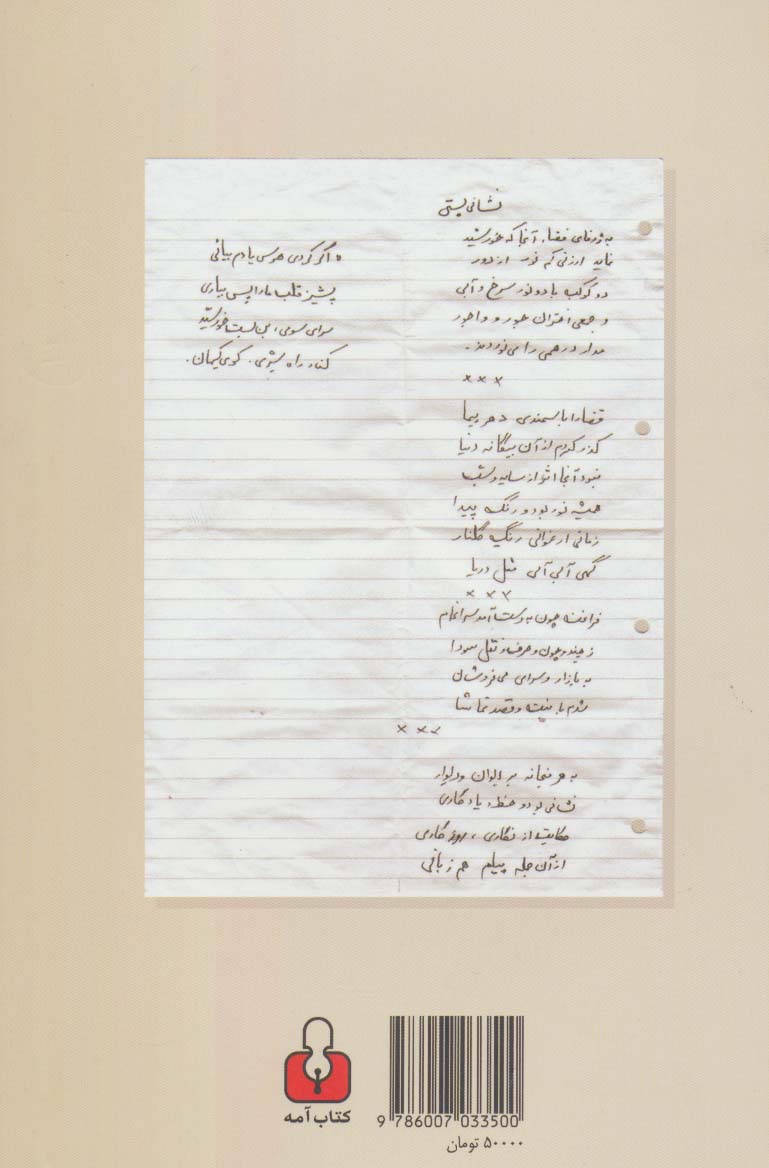 نشانی پستی
به ژرفنای فضا، آنجا که خورشید
نماید ارزنی کم نور از دور
دو کوکب با دو نور سرخ و آبی
و جمعی اختران جور و واجور
مدار درهمی را می نوردند.
× × ×
فضا را با سمندی دهر پیما
گذر کردم از آن بیگانه دنیا
نبود آنجا اثر از سایه و شب
همیشه نور بود و رنگ پیدا
زمانی ارغوانی رنگ گلنار
گهی آبی آبی مثل دریا
× × ×
فراغت چون به دست آمد سرانجام
ز چند و چون و حرف و نقل سودا
به بازار و سرای می فروشان
شدم با نیت و قصد تماشا
× × ×
به هر میخانه بر ایوان و دیوار
نشانی بود و خط و یادگاری
حکایت از نگاری، روزگاری
از آن جمله پیام هم زبانی
ه اگر کردی هوس یادم بیائی
پشیز قلب ما را پس بیاری
سرای سومی، این سمت خورشید
کنار راه شیری. کوی کیهان.
کتاب آمه
9 786007 033500
۵۰۰۰۰ تومان